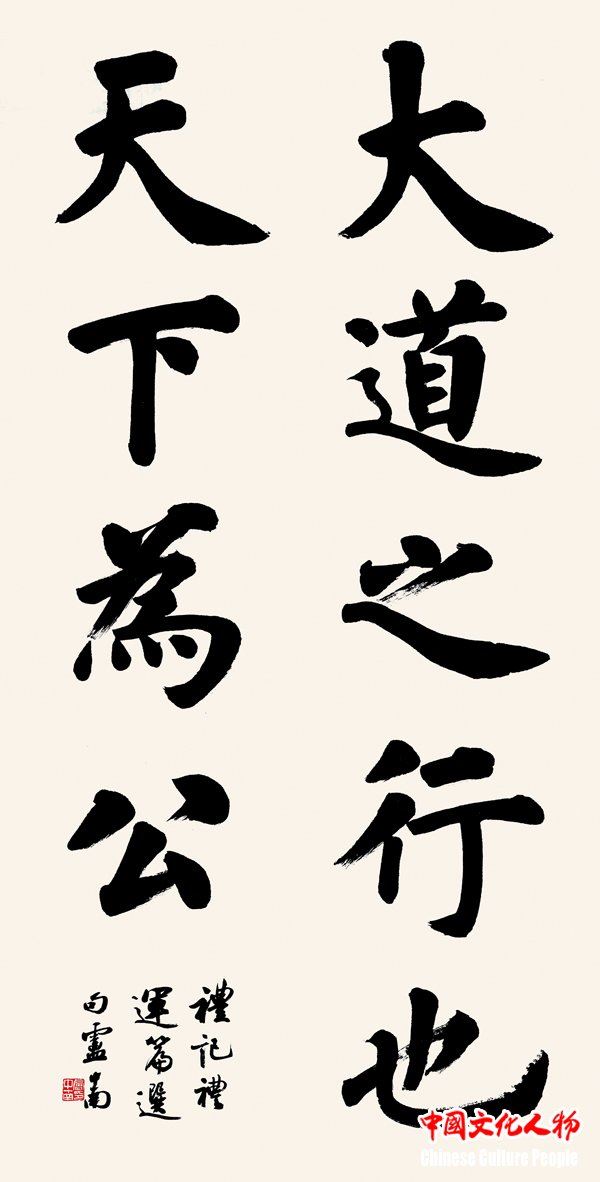 大道之行也
天下為公
禮記禮
運篇選
句靈甫
中國文化人物
Chinese Culture People